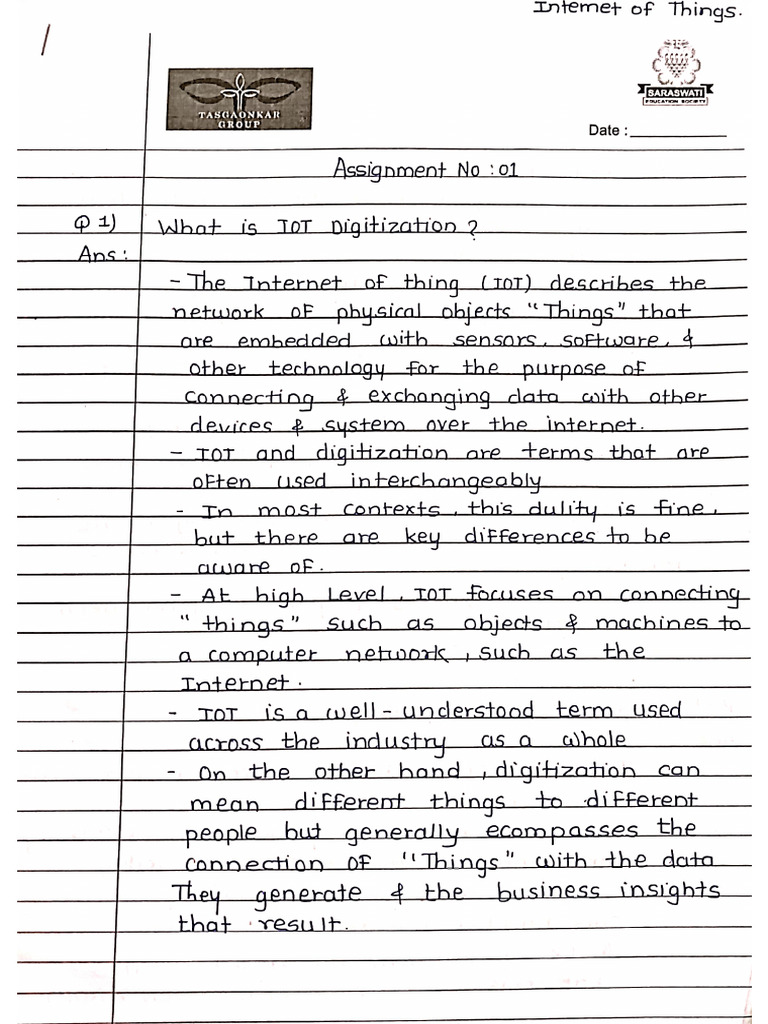 Internet of Things.
TASGAONKAR
GROUP
SARASWATI
EDUCATION SOCIETY
Date :
Assignment No : 01
Q 1) What is IOT Digitization?
Ans:
- The Internet of thing (IOT) describes the
network of physical objects "Things" that
are embedded with sensors, software, &
other technology for the purpose of
connecting & exchanging data with other
devices & system over the internet.
- IOT and digitization are terms that are
often used interchangeably
- In most contexts, this dulity is fine,
but there are key differences to be
aware of.
- At high Level, IOT focuses on connecting
"things" such as objects & machines to
a computer network, such as the
Internet.
- IOT is a well-understood term used
across the industry as a whole
- On the other hand, digitization can
mean different things to different
people but generally ecompasses the
connection of "Things" with the data
They generate & the business insights
that result.